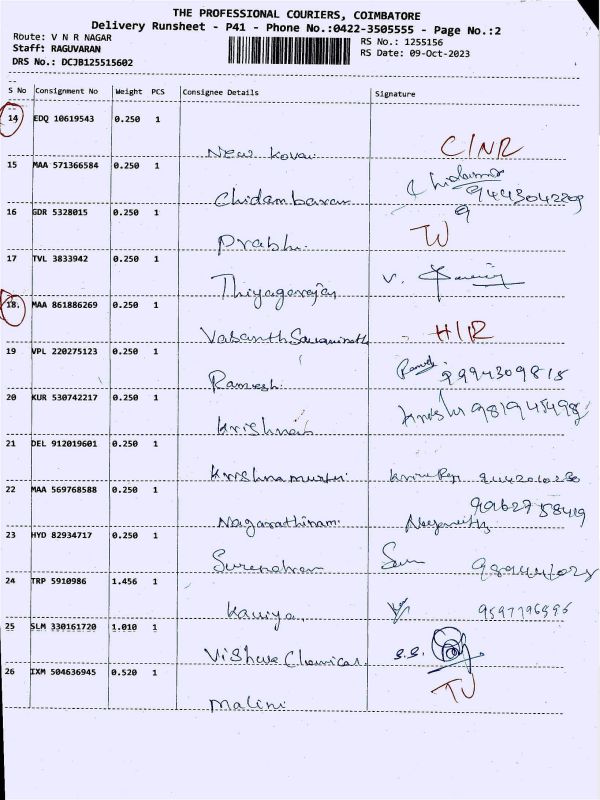 THE PROFESSIONAL COURIERS, COIMBATORE
Delivery Runsheet - P41 - Phone No.:0422-3505555 - Page No.:2
Route: V N R NAGAR
RS No.: 1255156
Staff: RAGUVARAN
RS Date: 09-Oct-2023
DRS No.: DCJB125515602
S No Consignment No Weight PCS Consignee Details Signature
14 EDQ 10619543 0.250 1
New Kovai C/NR
15 MAA 571366584 0.250 1
Chidambaram 9443042209
16 GDR 5328015 0.250 1
Prabhu. TW
17 TVL 3833942 0.250 1
Thiyagarajan V.
18. MAA 861886269 0.250 1
Vasanth H/R
19 VPL 220275123 0.250 1
Ramesh. 9994309815
20 KUR 530742217 0.250 1
Krishnab
21 DEL 912019601 0.250 1
Krishnamurthi
22 MAA 569768588 0.250 1
Nagarathinam. 9962758419
23 HYD 82934717 0.250 1
Surendran
24 TRP 5910986 1.456 1
Kaviya. 9597796996
25 SLM 330161720 1.010 1
Vishva Chemical. S.S.
26 IXM 504636945 0.520 1
Malini TW